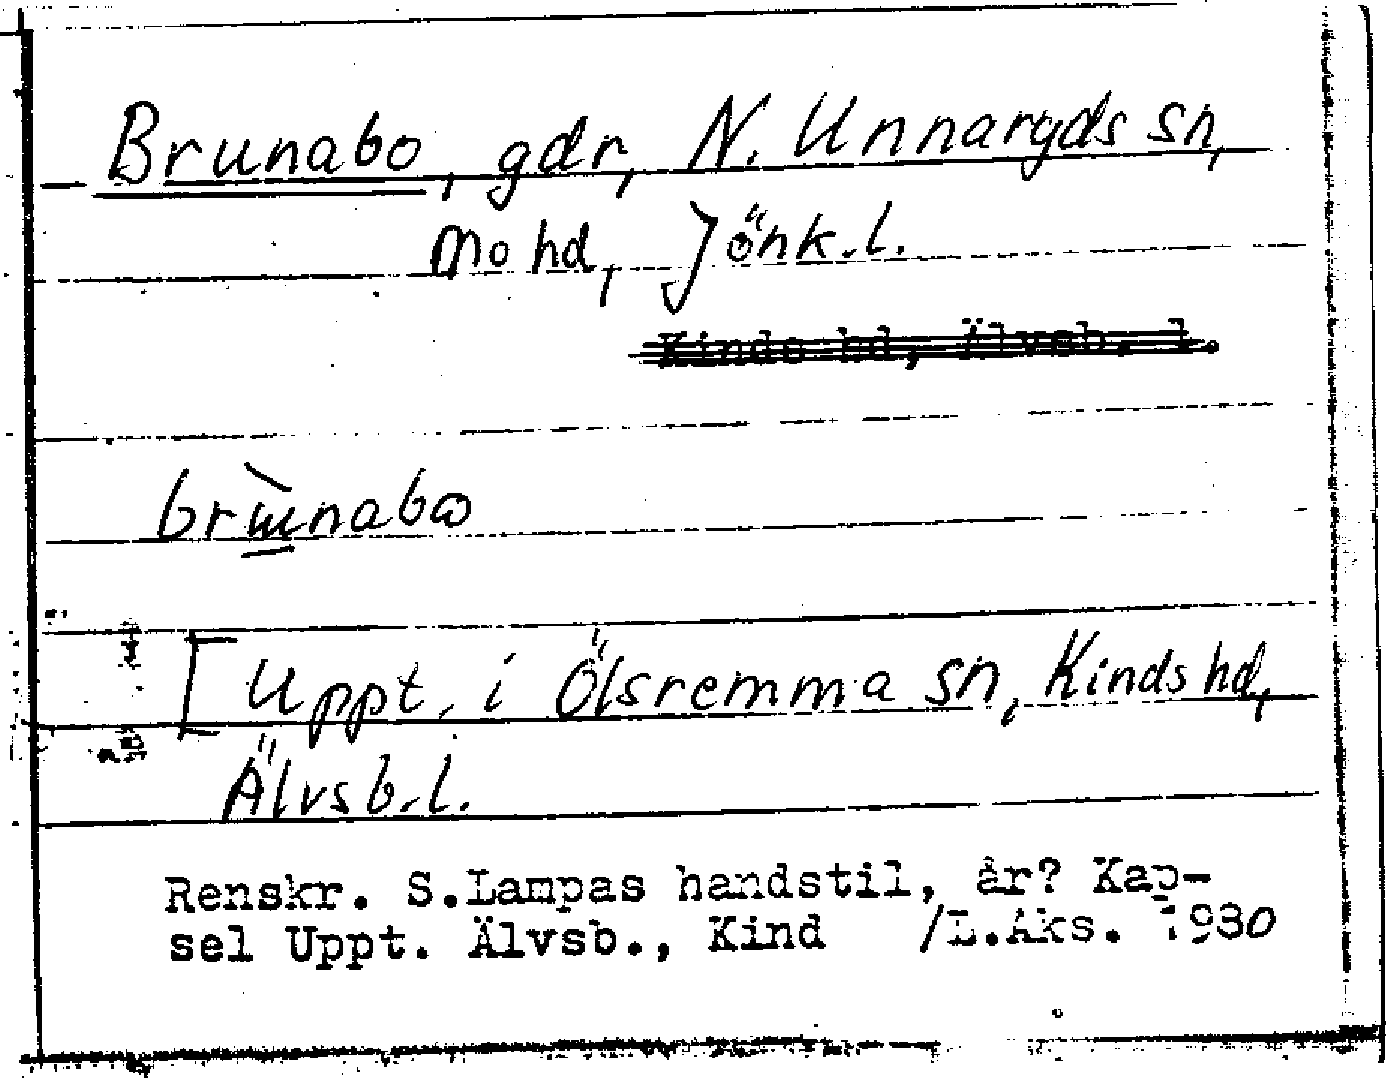 Brunabo, gdr, N. Unnaryds sn,
Mo hd, Jönk. l.
Kinds hd, Älvsb. l.
[Uppt. i Ölsremma sn, Kinds hd,
Älvsb. l.
Renskr. S.Lampas handstil, år? Kap-
sel Uppt. Älvsb., Kind /L.Aks. 1980